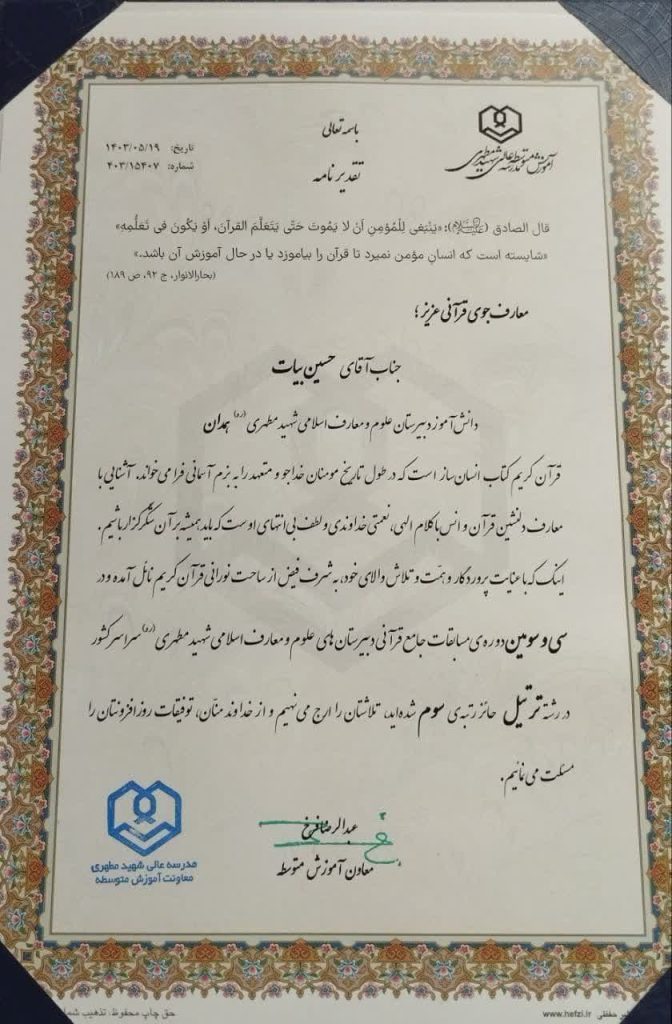 باسمه تعالی
تقدیرنامه
آموزش متوسطه مدرسه عالی شهید مطهری
تاریخ: ۱۴۰۳/۰۵/۱۹
شماره: ۴۰۳/۱۵۴۰۷
قال الصادق (علیه‌السلام): «یَنْبَغی لِلْمُؤمِنِ اَنْ لا یَمُوتَ حَتّی یَتَعَلَّمَ القرآنَ، اَوْ یَکُونَ فی تَعَلُّمِهِ»
«شایسته است که انسانِ مؤمن نمیرد تا قرآن را بیاموزد یا در حال آموزش آن باشد.»
(بحارالانوار، ج ۹۲، ص ۱۸۹)
معارف جوی قرآنی عزیز؛
جناب آقای حسین بیات
دانش آموز دبیرستان علوم و معارف اسلامی شهید مطهری (ره) همدان
قرآن کریم کتاب انسان ساز است که در طول تاریخ مومنان خداجو و متعهد را به بزم آسمانی فرا می خواند. آشنایی با
معارف دلنشین قرآن و انس با کلام الهی، نعمتی خداوندی و لطف بی انتهای اوست که باید همیشه بر آن شکرگزار باشیم.
اینک که با عنایت پروردگار و همّت و تلاش والای خود، به شرف فیض از ساحت نورانی قرآن کریم نائل آمده و در
سی و سومین دوره ی مسابقات جامع قرآنی دبیرستان های علوم و معارف اسلامی شهید مطهری (ره) سراسر کشور
در رشته ترتیل حائز رتبه ی سوم شده اید، تلاشتان را ارج می نهیم و از خداوند منّان، توفیقات روز افزونتان را
مسئلت می نمائیم.
عبدالرضا فرخ
معاون آموزش متوسطه
مدرسه عالی شهید مطهری
معاونت آموزش متوسطه
حق چاپ محفوظ: تذهیب
حفظی www.hefzi.ir